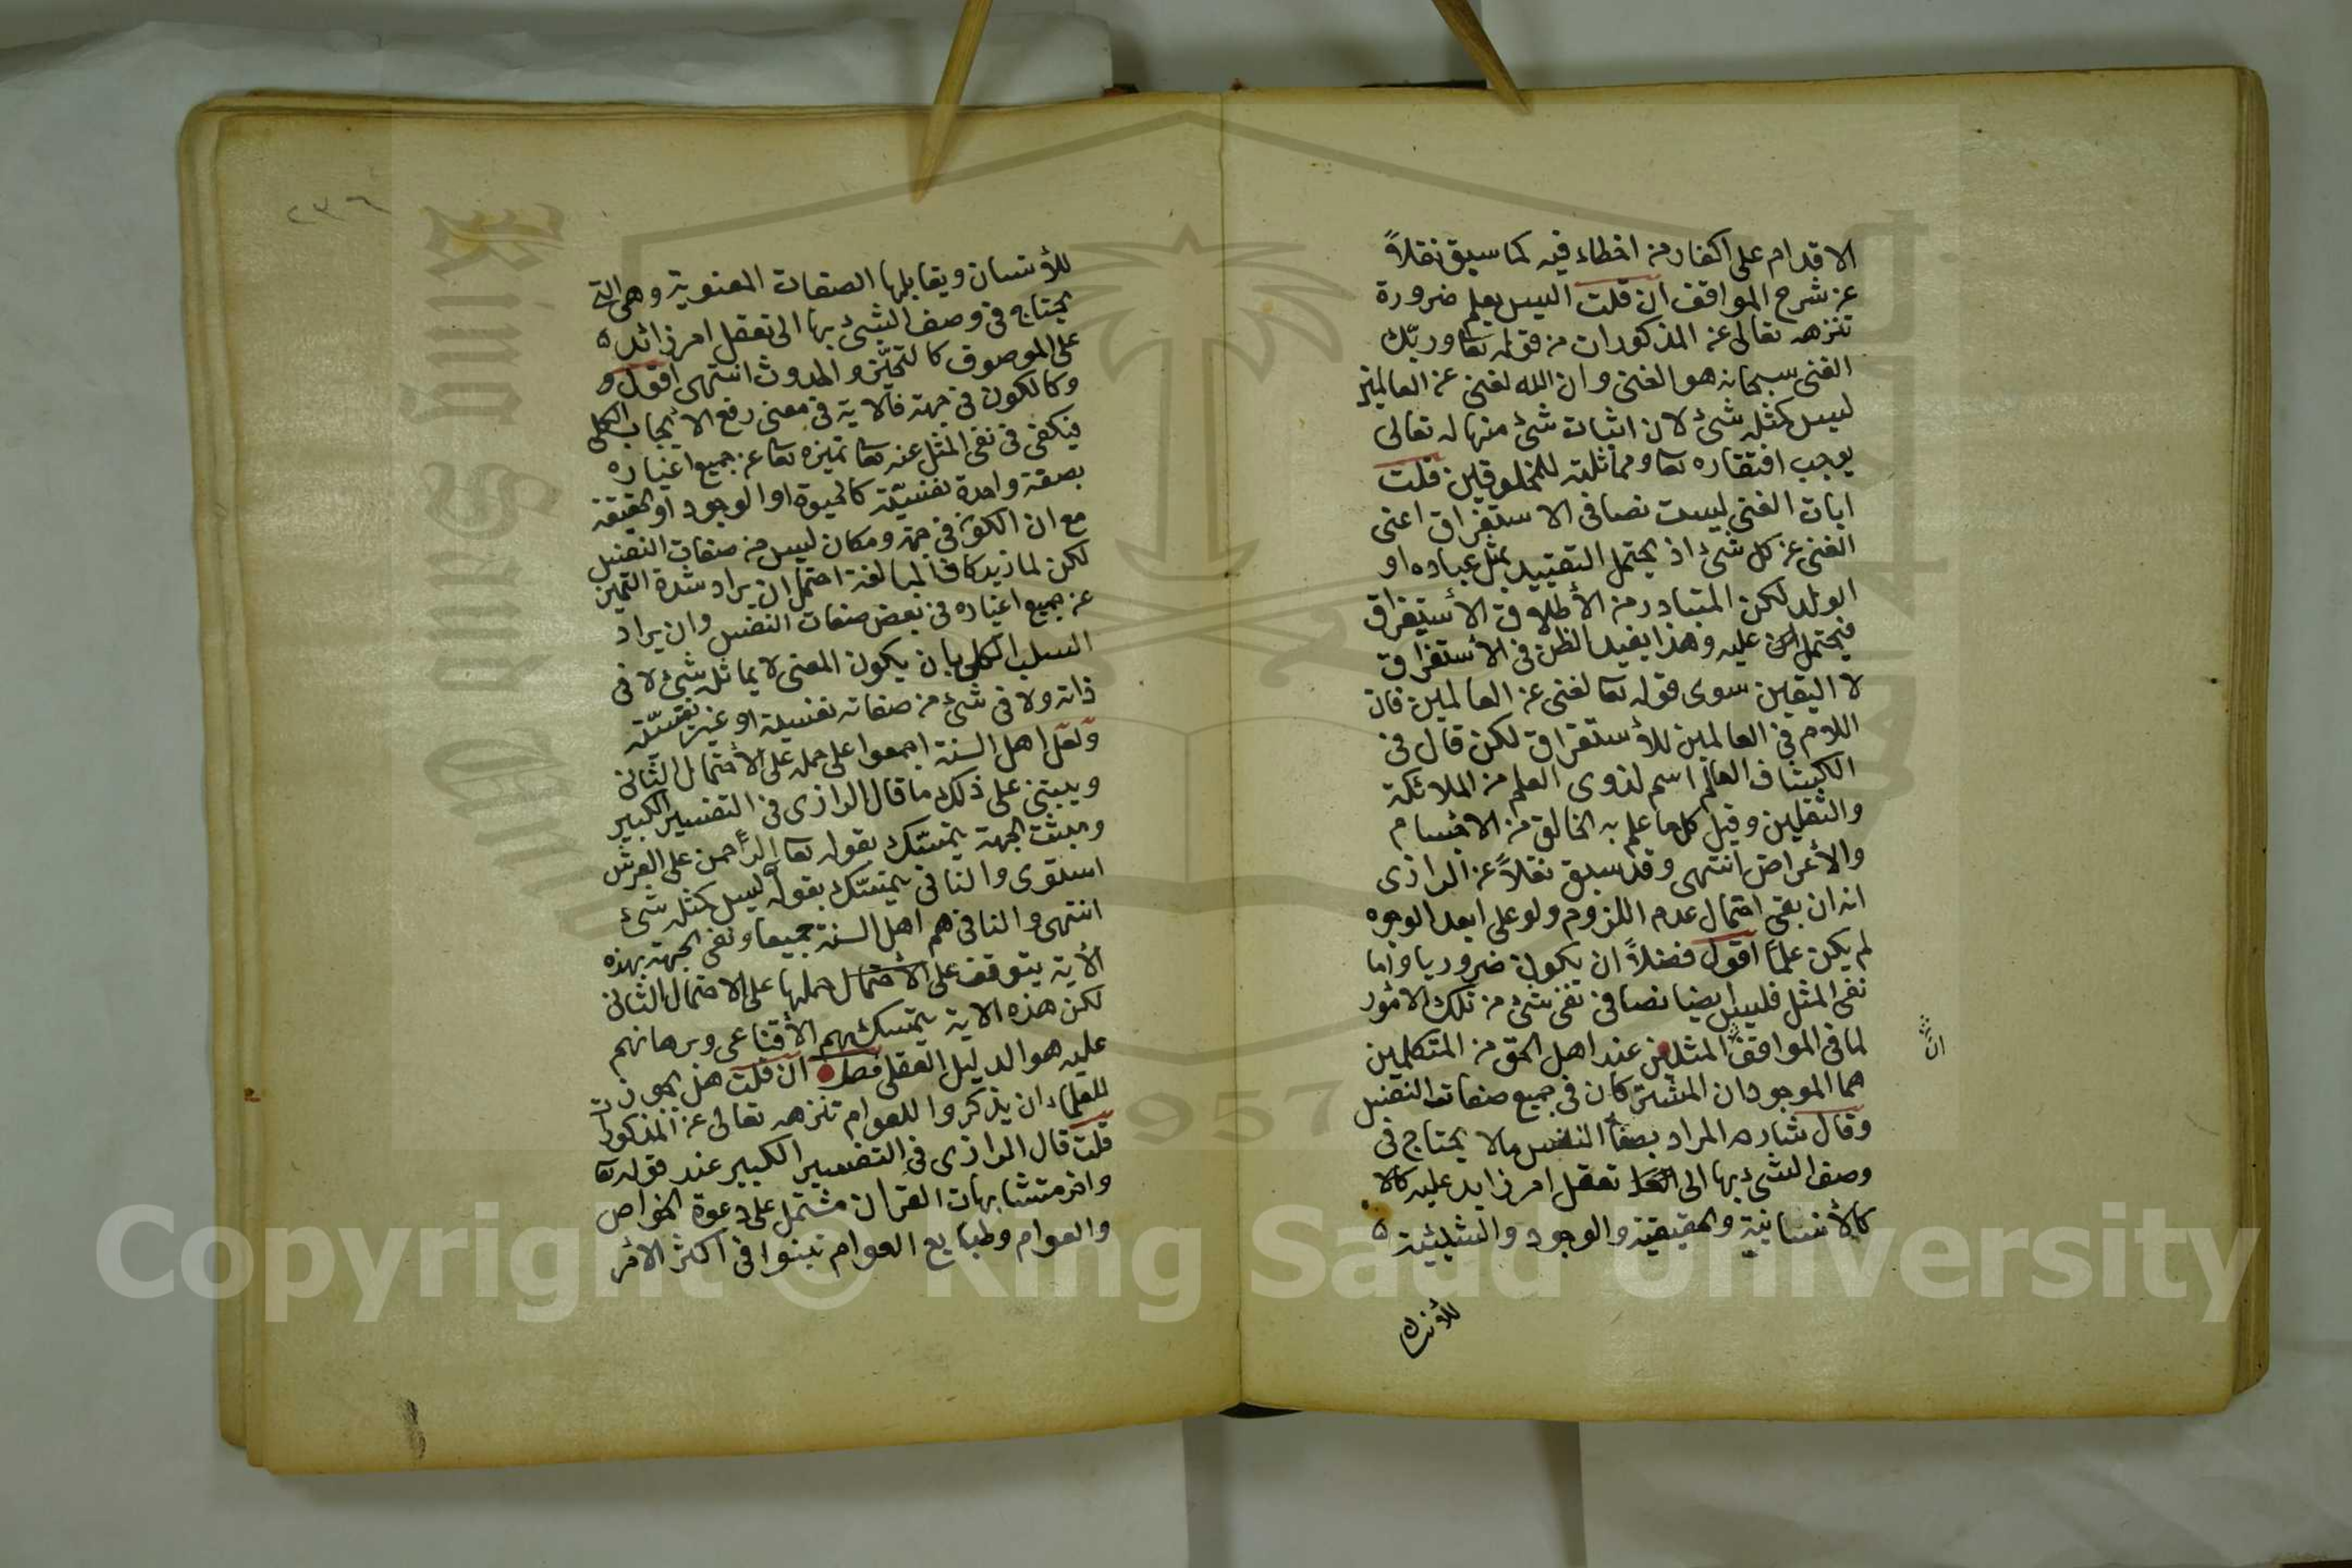 الاقدام على اكفار من اخطاء فيه كما سبق نقلاً
عن شرح المواقف ان قلت اليس يعلم ضرورة
تنزهه تعالى عن المذكورات من قوله تعا وربّك
الغنى سبحانه هو الغنى وان الله لغنى عن العالمين
ليس كمثله شئ لان اثبات شئ منها له تعالى
يوجب افتقاره تعا ومماثلته للمخلوقين قلت
ايات الغنى ليست نصا فى الاستغراق اعنى
الغنى عن كل شئ اذ يحتمل التقييد بمثل عباده او
الولد لكن المتبادر من الأطلاق الأستغراق
فيحتمل عليه وهذا يفيد الظن فى الأستغراق
لا اليقين سوى قوله تعا لغنى عن العالمين فان
اللام فى العالمين للأستغراق لكن قال فى
الكشاف العالم اسم لذوى العلم من الملائكة
والثقلين وقيل كل ما علم به الخالق من الاجسام
والأعراض انتهى وقد سبق نقلاً عن الرازى
انه ان بقى احتمال عدم اللزوم ولو على ابعد الوجوه
لم يكن علماً اقول فضلاً ان يكون ضروريا واما
نفى المثل فليس ايضا نصا فى نفى شئ من تلك الامور
لما فى المواقف المثلين عند اهل الحق من المتكلمين
ان
هما الموجودان المشتركان فى جميع صفات النفس
وقال شارحه المراد بصفات النفس ما لا يحتاج فى
وصف الشئ بها الى تعقل امر زايد عليه كالا
كالأنسانية والحقيقة والوجود والشيئية
للأنسان
٢٣٦
للأنسان ويقابلها الصفات المعنوية وهى التى
يحتاج فى وصف الشئ بها الى تعقل امر زائد
على الموصوف كالتحيّز والحدوث انتهى اقول و
وكالكون فى جهة فالاية فى معنى رفع الايجاب الكلى
فيكفى فى نفى المثل عنه تعا تميزه تعا عن جميع اغياره
بصفة واحدة نفسيّة كالحيوة او الوجود او الحقيقة
مع ان الكون فى جهة ومكان ليس من صفات النفس
لكن لما زيد كاف المبالغة احتمل ان يراد شدة التميز
عن جميع اغياره فى بعض صفات النفس وان يراد
السلب الكلى بان يكون المعنى لا يماثله شئ لا فى
ذاته ولا فى شئ من صفاته نفسية او غير نفسيّة
ولعل اهل السنة اجمعوا على حمله على الأحتمال الثانى
ويبتنى على ذلك ما قال الرازى فى التفسير الكبير
ومثبت الجهة يتمسّك بقوله تعا الرّحمن على العرش
استوى والنافى يتمسّك بقوله ليس كمثله شئ
انتهى والنافى هم اهل السنة جميعا ونفى الجهة بهذه
الأية يتوقف على الأحتمال حملها على الاحتمال الثانى
لكن هذه الاية يتمسك بهم الأقناعى وبرهانهم
عليه هو الدليل العقلى فصل ان قلت هل يجوز
للعلماء ان يذكروا للعوام تنزهه تعالى عن المذكورات
قلت قال الرازى فى التفسير الكبير عند قوله تعا
واخر متشابهات القرأن مشتمل على دعوة الخواص
والعوام وطبايع العوام تنبوا فى اكثر الأمر